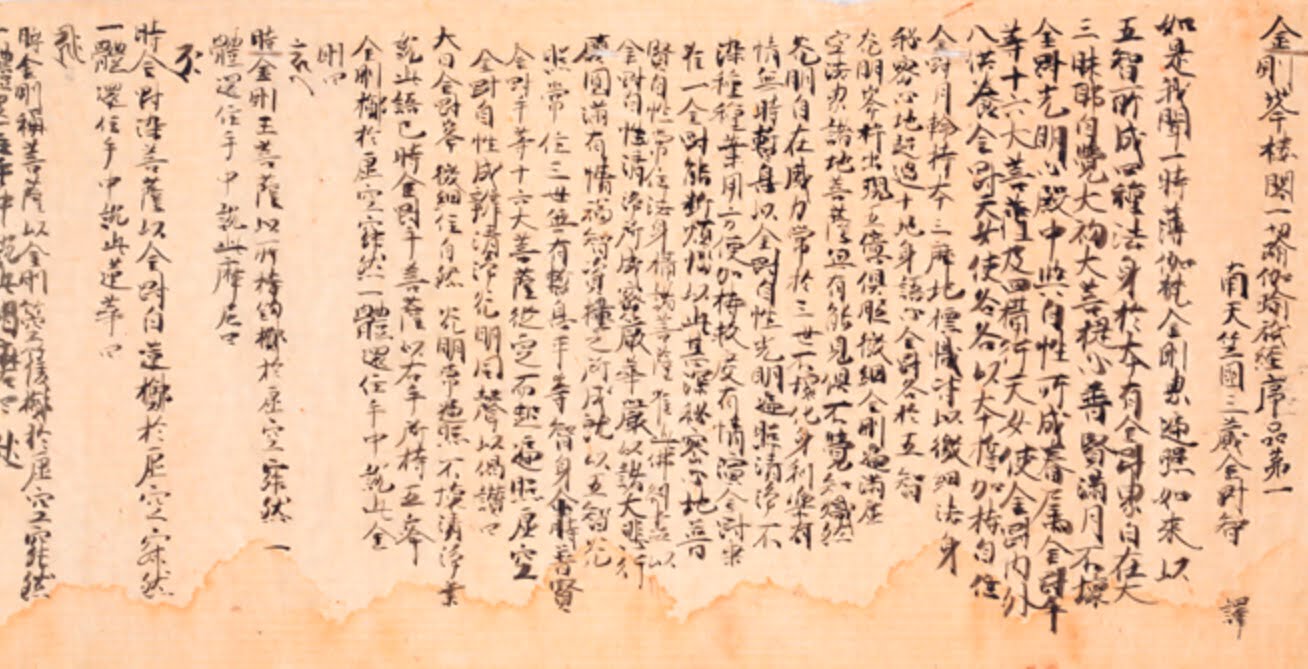 金剛峯楼閣一切瑜伽瑜祇経序品第一
南天竺國三蔵金剛智 譯
如是我聞一時薄伽梵金剛界遍照如來以
五智所成四種法身於本有金剛界自在大
三昧耶自覺大菩提心普賢滿月不壞
金剛光明心殿中與自性所成眷屬金剛手
等十六大菩薩及四攝行天女使金剛內外
八供養金剛天女使各各以本誓加持自住
金剛月輪持本三摩地標幟皆以微細法身
秘密心地超過十地身語心金剛各於五智
光明峯杵出現五億俱胝微細金剛遍滿虛
空法界諸地菩薩無有能見俱不覺知熾然
光明自在威力常於三世不壞化身利樂有
情無時暫息以金剛自性光明遍照清淨不
染種種業用方便加持救度有情演金剛乘
唯一金剛能斷煩惱以此甚深秘密心地普
賢自性常住法身攝諸菩薩唯此佛剎盡以
金剛自性清淨所成密嚴華嚴以諸大悲行
願圓滿有情福智資糧之所成就以五智光
照常住三世無有暫息平等智身今時普賢
金剛手等十六大菩薩從定而起遍照虛空
金剛自性成就清淨光明同聲以偈讚曰
大日金剛峯 微細住自然 光明常遍照 不壞清淨業
說此語已時金剛手菩薩以右手所持五峯
金剛擲於虛空寂然一體還住手中說此金
剛曰
時金剛王菩薩以所持鉤擲於虛空寂然一
體還住手中說此摩尼曰
時金剛染菩薩以金剛自蓮擲於虛空寂然
一體還住手中說此蓮華曰
時金剛稱菩薩以金剛笑後擲於虛空寂然